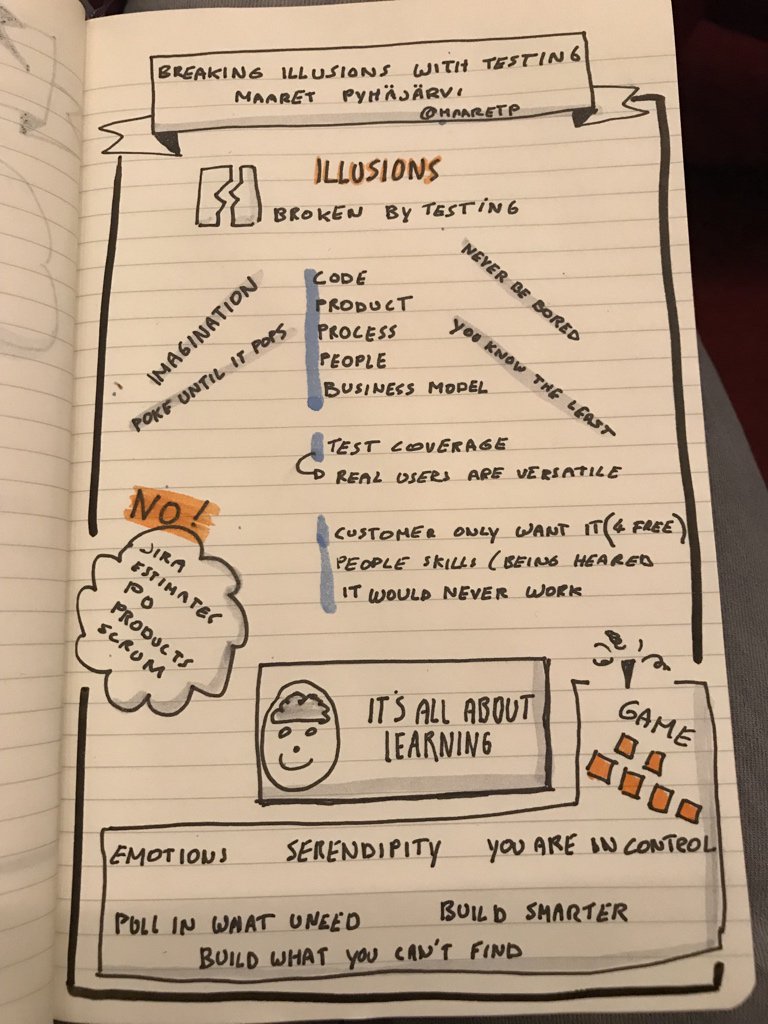 BREAKING ILLUSIONS WITH TESTING
MAARET PYHÄJÄRVI
@MAARETP
ILLUSIONS
BROKEN BY TESTING
IMAGINATION
POKE UNTIL IT POPS
CODE
PRODUCT
PROCESS
PEOPLE
BUSINESS MODEL
NEVER BE BORED
YOU KNOW THE LEAST
TEST COVERAGE
REAL USERS ARE VERSATILE
NO!
JIRA
ESTIMATES
PO
PRODUCTS
SCRUM
CUSTOMER ONLY WANT IT (4 FREE)
PEOPLE SKILLS (BEING HEARED
IT WOULD NEVER WORK
IT'S ALL ABOUT
LEARNING
GAME
EMOTIONS SERENDIPITY YOU ARE IN CONTROL
PULL IN WHAT UNEED BUILD SMARTER
BUILD WHAT YOU CAN'T FIND